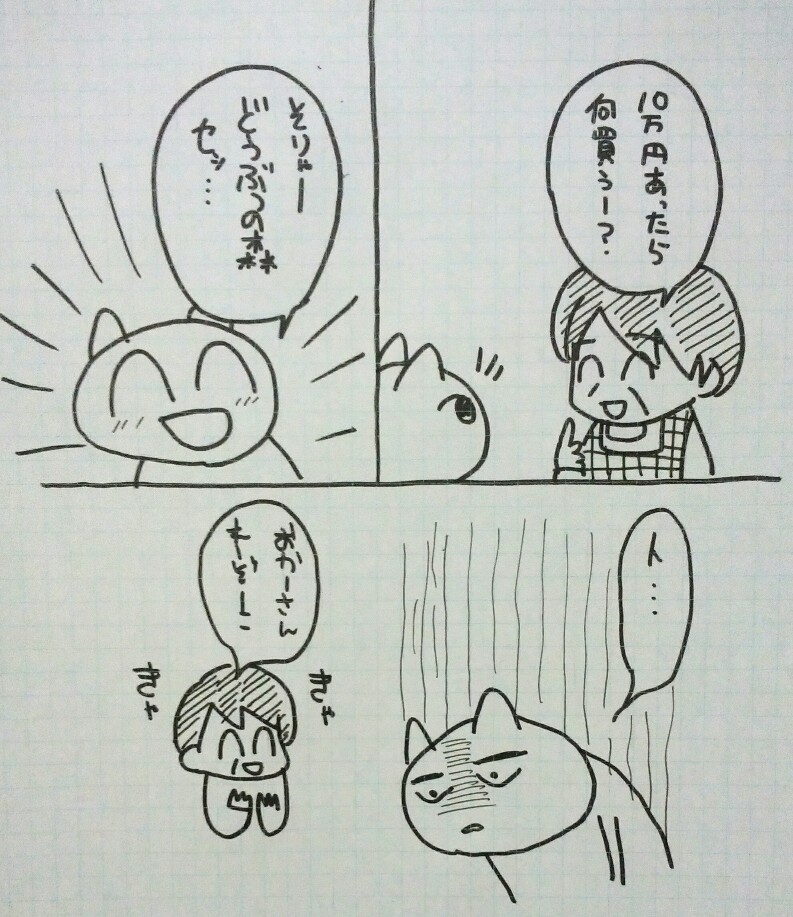 10万円あったら
何買うー?
そりゃー
どうぶつの森
セッ…
ト…
おかーさん
れーぞーこ
きゃ
きゃ